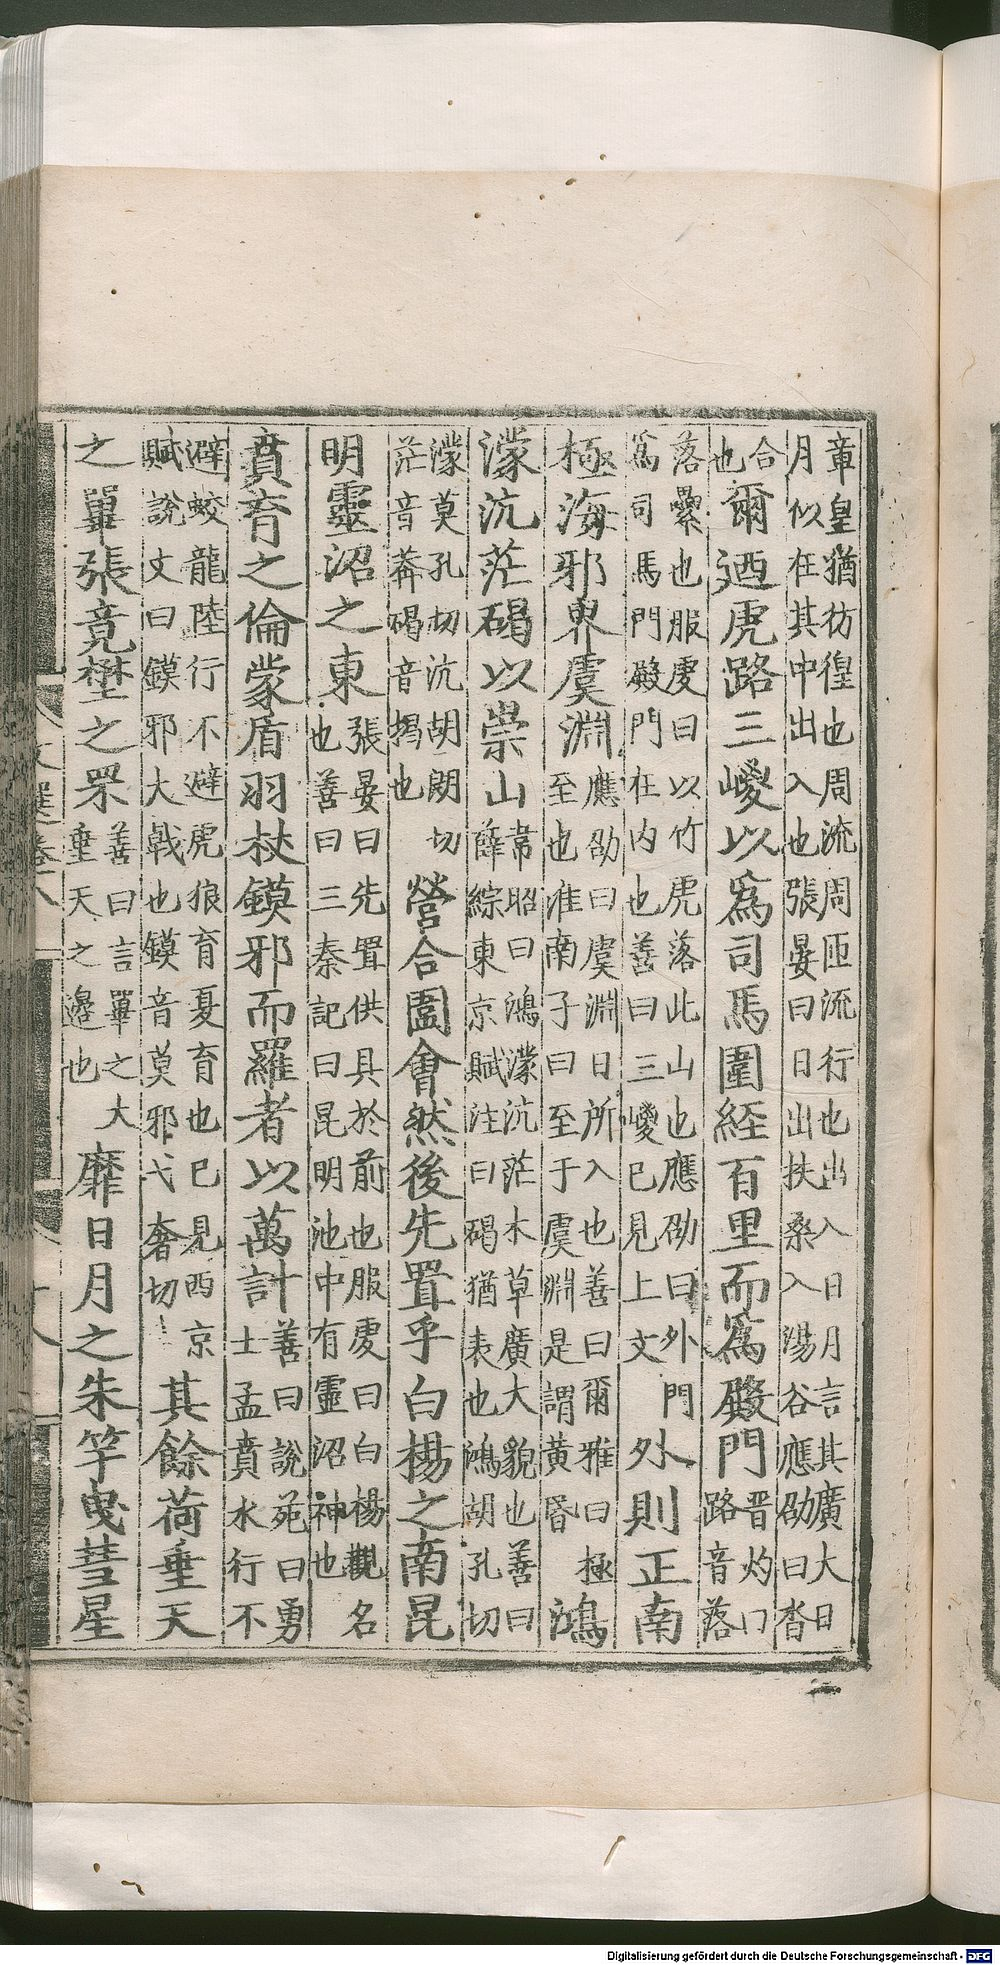 章皇猶彷徨也周流周匝流行也出入日月言其廣大日
月似在其中出入也張晏曰日出扶桑入湯谷應劭曰沓
合
也
爾迺虎路三嵕以爲司馬圍經百里而爲殿門
晋灼曰
路音落
落纍也服虔曰以竹虎落此山也應劭曰外門
爲司馬門殿門在内也善曰三嵕已見上文
外則正南
極海邪界虞淵
應劭曰虞淵日所入也善曰爾雅曰極
至也淮南子曰至于虞淵是謂黄昬
鴻
濛沆茫碣以崇山
韋昭曰鴻濛沆茫木草廣大貌也善曰
薛綜東京賦注曰碣猶表也鴻胡孔切
濛莫孔切沆胡朗切
茫音莽碣音揭也
營合圍會然後先置乎白楊之南昆
明靈沼之東
張晏曰先置供具於前也服虔曰白楊觀名
也善曰三秦記曰昆明池中有靈沼神也
賁育之倫蒙盾羽杖鏌邪而羅者以萬計
善曰說苑曰勇
士孟賁水行不
避蛟龍陸行不避虎狼育夏育也已見西京
賦說文曰鏌邪大戟也鏌音莫邪弋奢切
其餘荷垂天
之畢張竟壄之罘
善曰言畢之大
垂天之邊也
靡日月之朱竿曳彗星
Digitalisierung gefördert durch die Deutsche Forschungsgemeinschaft - DFG